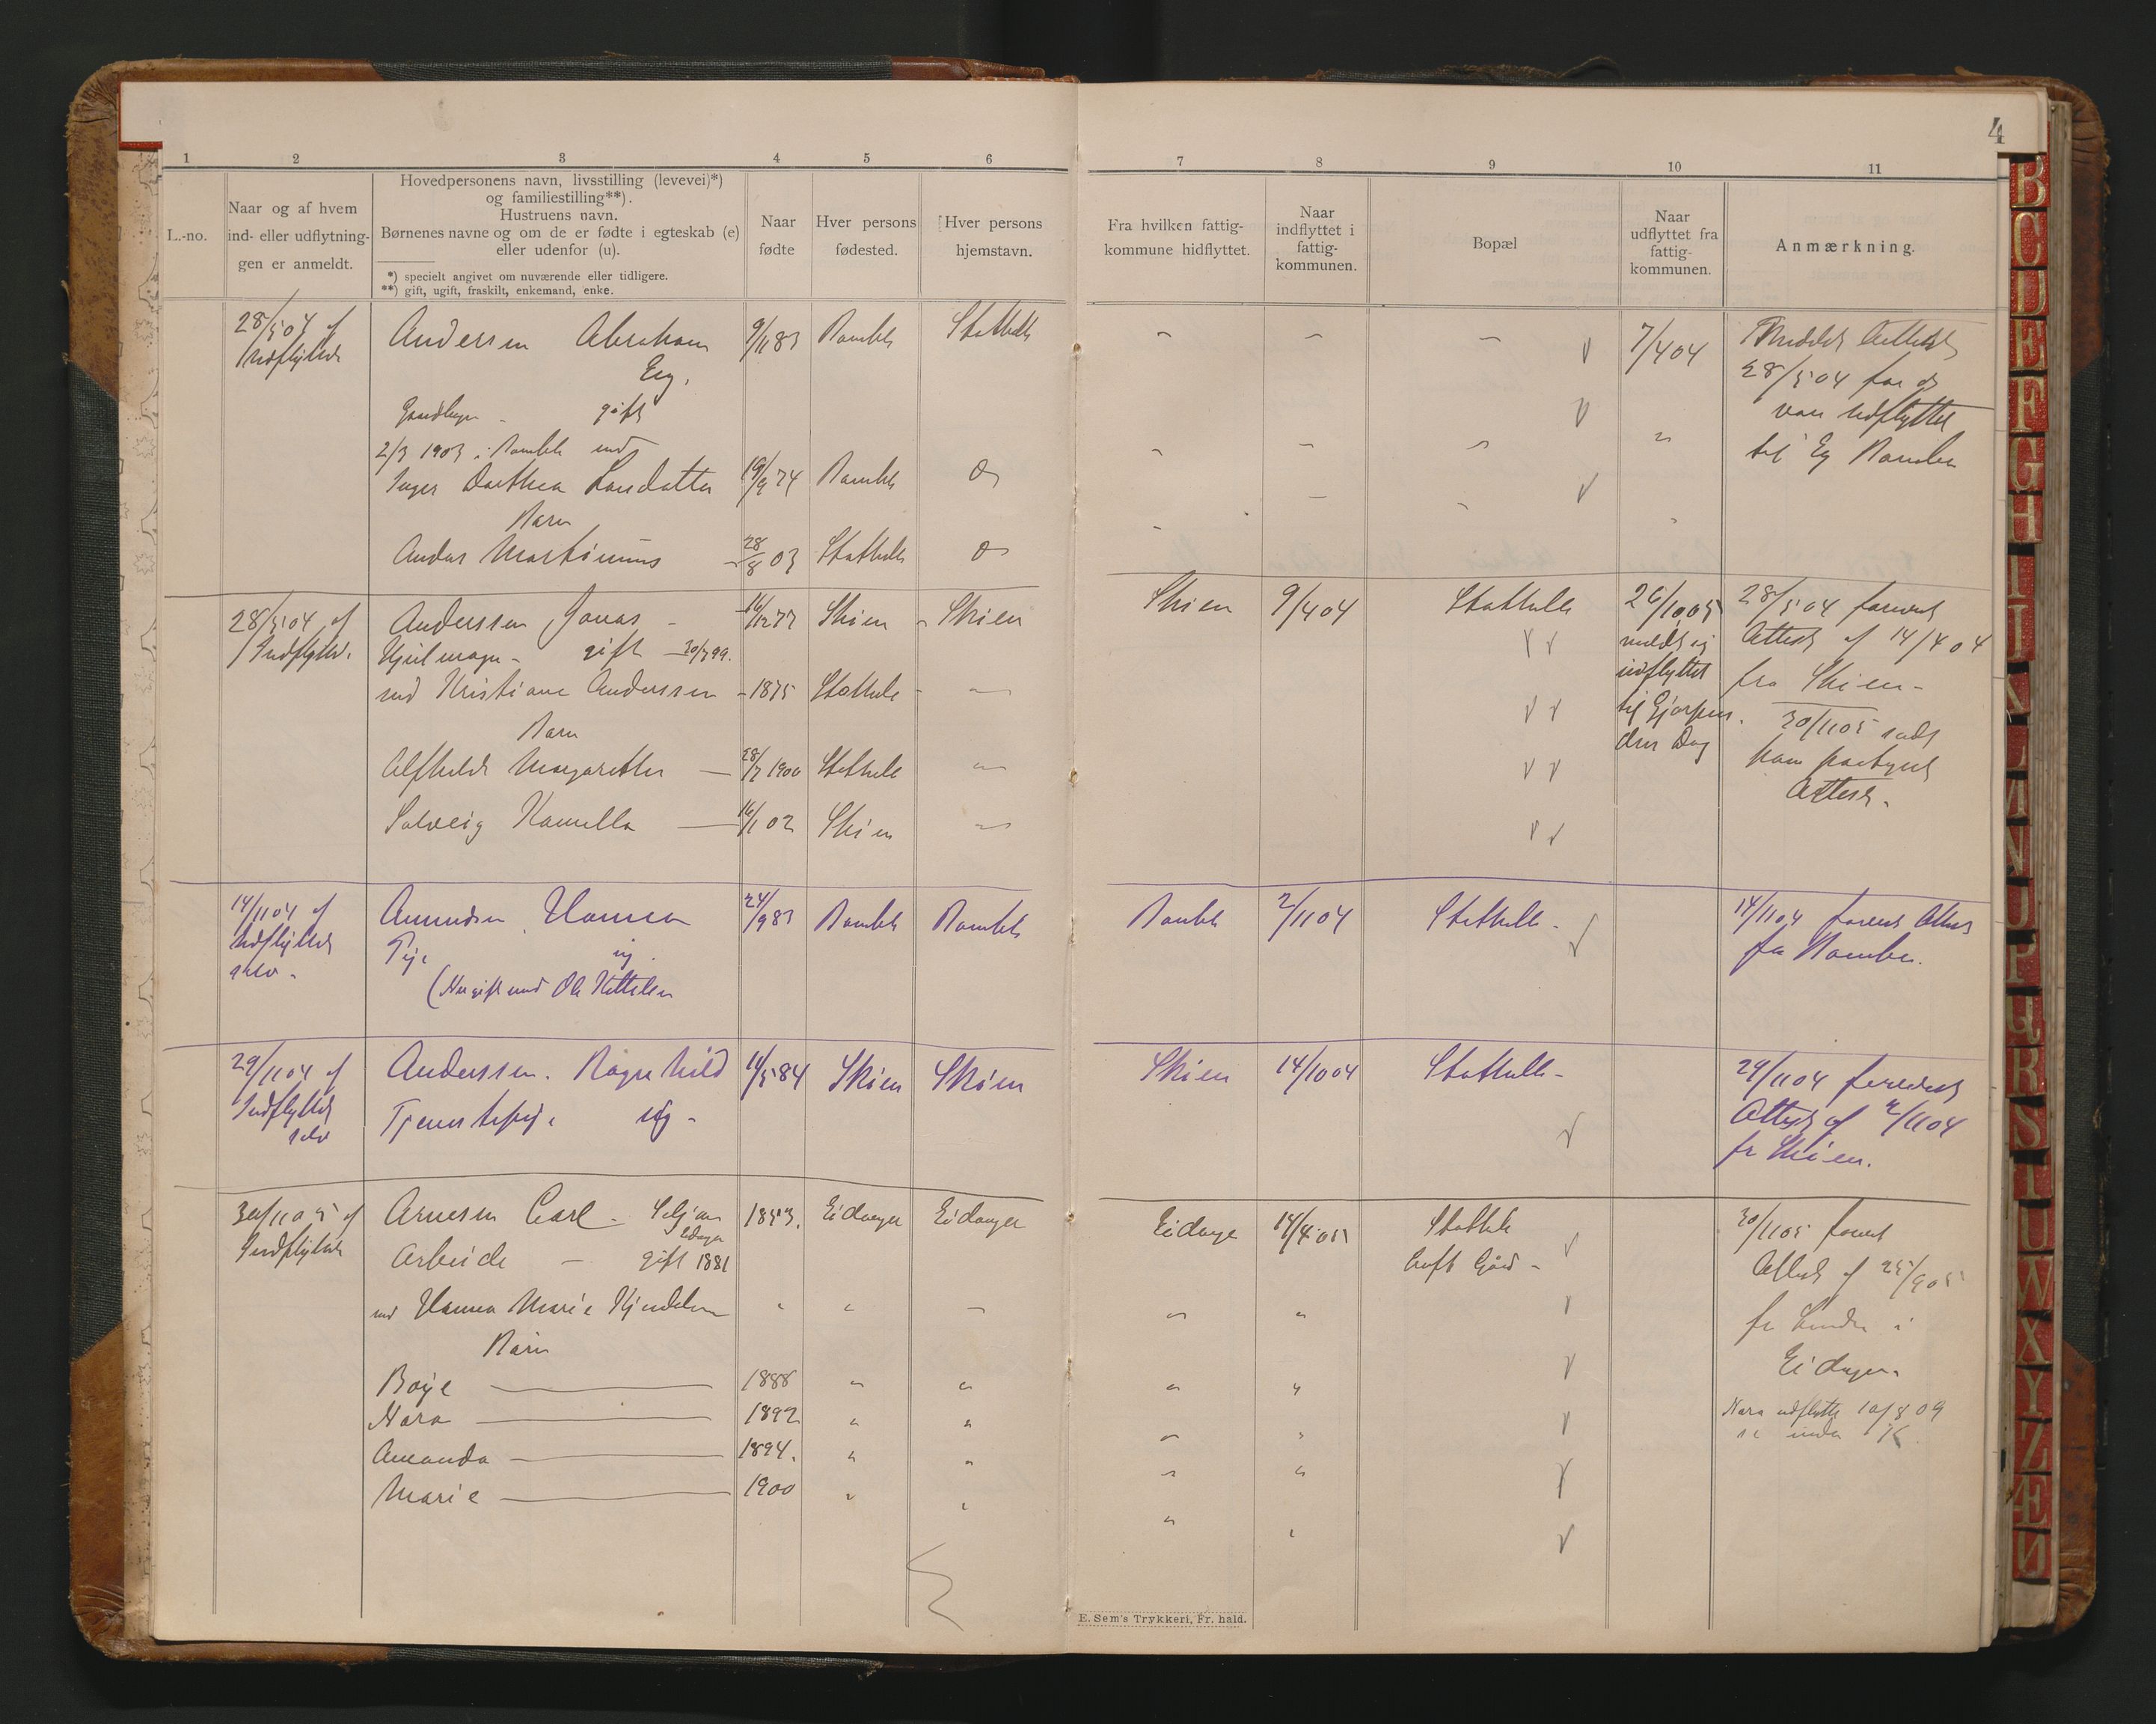 4
1 2 3 4 5 6 7 8 9 10 11
L.-no.
Naar og af hvem
ind- eller udflytnin-
gen er anmeldt.
Hovedpersonens navn, livsstilling (levevei)*)
og familiestilling**).
Hustruens navn.
Børnenes navne og om de er fødte i egteskab (e)
eller udenfor (u).
*) specielt angivet om nuværende eller tidligere.
**) gift, ugift, fraskilt, enkemand, enke.
Naar
fødte
Hver persons
fødested.
Hver persons
hjemstavn.
Fra hvilken fattig-
kommune hidflyttet.
Naar
indflyttet i
fattig-
kommunen.
Bopæl
Naar
udflyttet fra
fattig-
kommunen.
Anmærkning.
28/5 04 af Andersen Abraham 9/11 83 Bamble Stathelle 7/4 04 Attest
Eeg. 28/5 04 for at
gift var udflyttet
2/3 1903 i Bamble med til Eg Bamble
Inger Dorthea Larsdatter 19/9 74 Bamble Do
Barn
Anders Martinius 28/8 03 Stathelle Do
28/5 04 af Anderssen Jonas 16/12 77 Skien Skien Skien 9/4 04 Stathelle 26/10 05 28/5 04 forevist
Indflytter. Hjulmager - gift 30/7 99. meldt sig Attest af 14/4 04
med Kristiane Anderssen - 1875 Stathelle udflyttet fra Skien -
Barn til Gjerpen. 30/11 05 sendt
Alfhilde Margarethe 28/7 1900 Stathelle den Dag ham
Solveig Kamilla 16/1 02 Skien Attest.
14/11 04 af Amundsen Hanna 24/9 83 Bamble Bamble Bamble 2/11 04 Stathelle - 14/11 04 forevist Attest
Indflytter Pige ug. fra Bamble.
selv - (Nu gift med Ole Kittelsen
29/11 04 af Anderssen. Ragnhild 11/5 84 Skien Skien Skien 14/10 04 Stathelle - 29/11 04 forevist
Indflytter Tjenestepige ug - Attest af 2/11 04
selv fr Skien.
30/11 05 af Arnesen Carl - 1853. Eidanger Eidanger Eidanger 14/4 05 Stathelle 30/11 05 forevist
Indflytter Arbeide - gift 1881 Attest af 25/9 05
med Hanna Marie fr i
Barn Eidanger.
Boye 1888
Nara 1892 Nara udflytte 10/8 09
Amanda 1894. se under K
Marie 1900
E. Sem's Trykkeri, Fr. hald.
B
C
D
E
F
G
H
I
J
K
L
M
N
O
P
Q
R
S
T
U
W
X
Y
Z
Æ
Ø